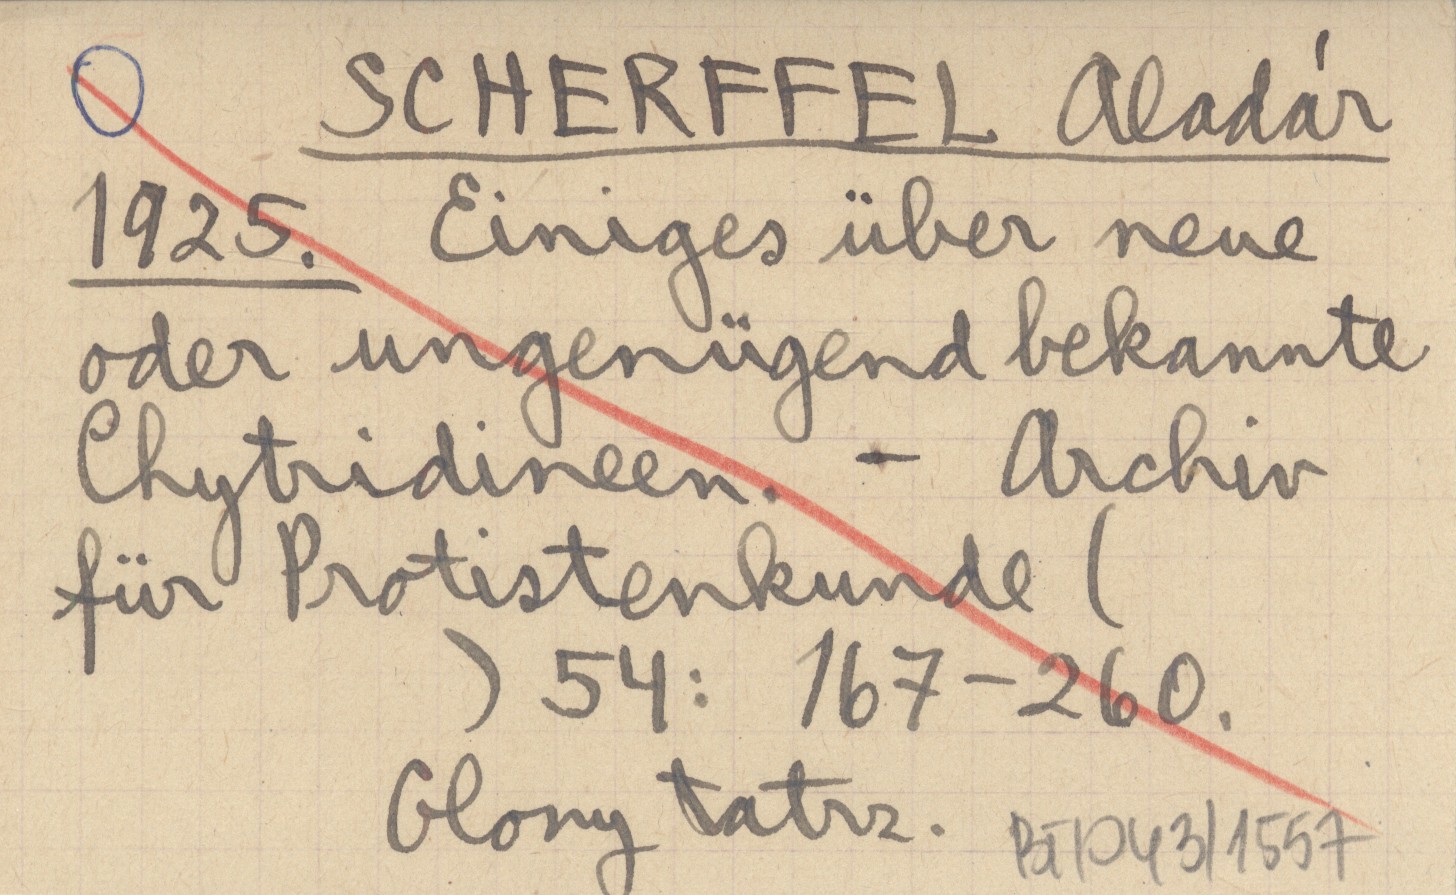 SCHERFFEL Aladár
1925. Einiges über neue
oder ungenügend bekannte
Chytridineen. - Archiv
für Protistenkunde (
) 54: 167-260.
Glony tatrz. BT/D43/1557